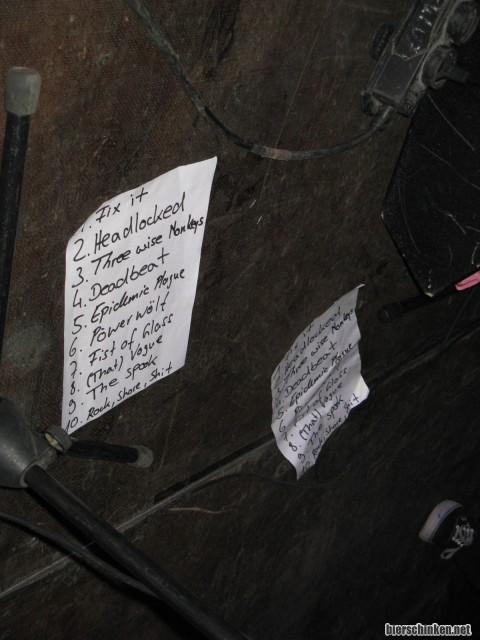 1. Fix it
2. Headlocked
3. Three wise Monkeys
4. Deadbeat
5. Epidemic Plague
6. Power wölf
7. Fist of Glass
8. (That) Vogue
9. The spook
10. Rock, Shore, Shit
Headlocked
Three wise Monkeys
Deadbeat
5. Epidemic Plague
6. Glass
8. (That) Vogue
9. The spook
10. Rock, Shore, Shit
bierschinken.net